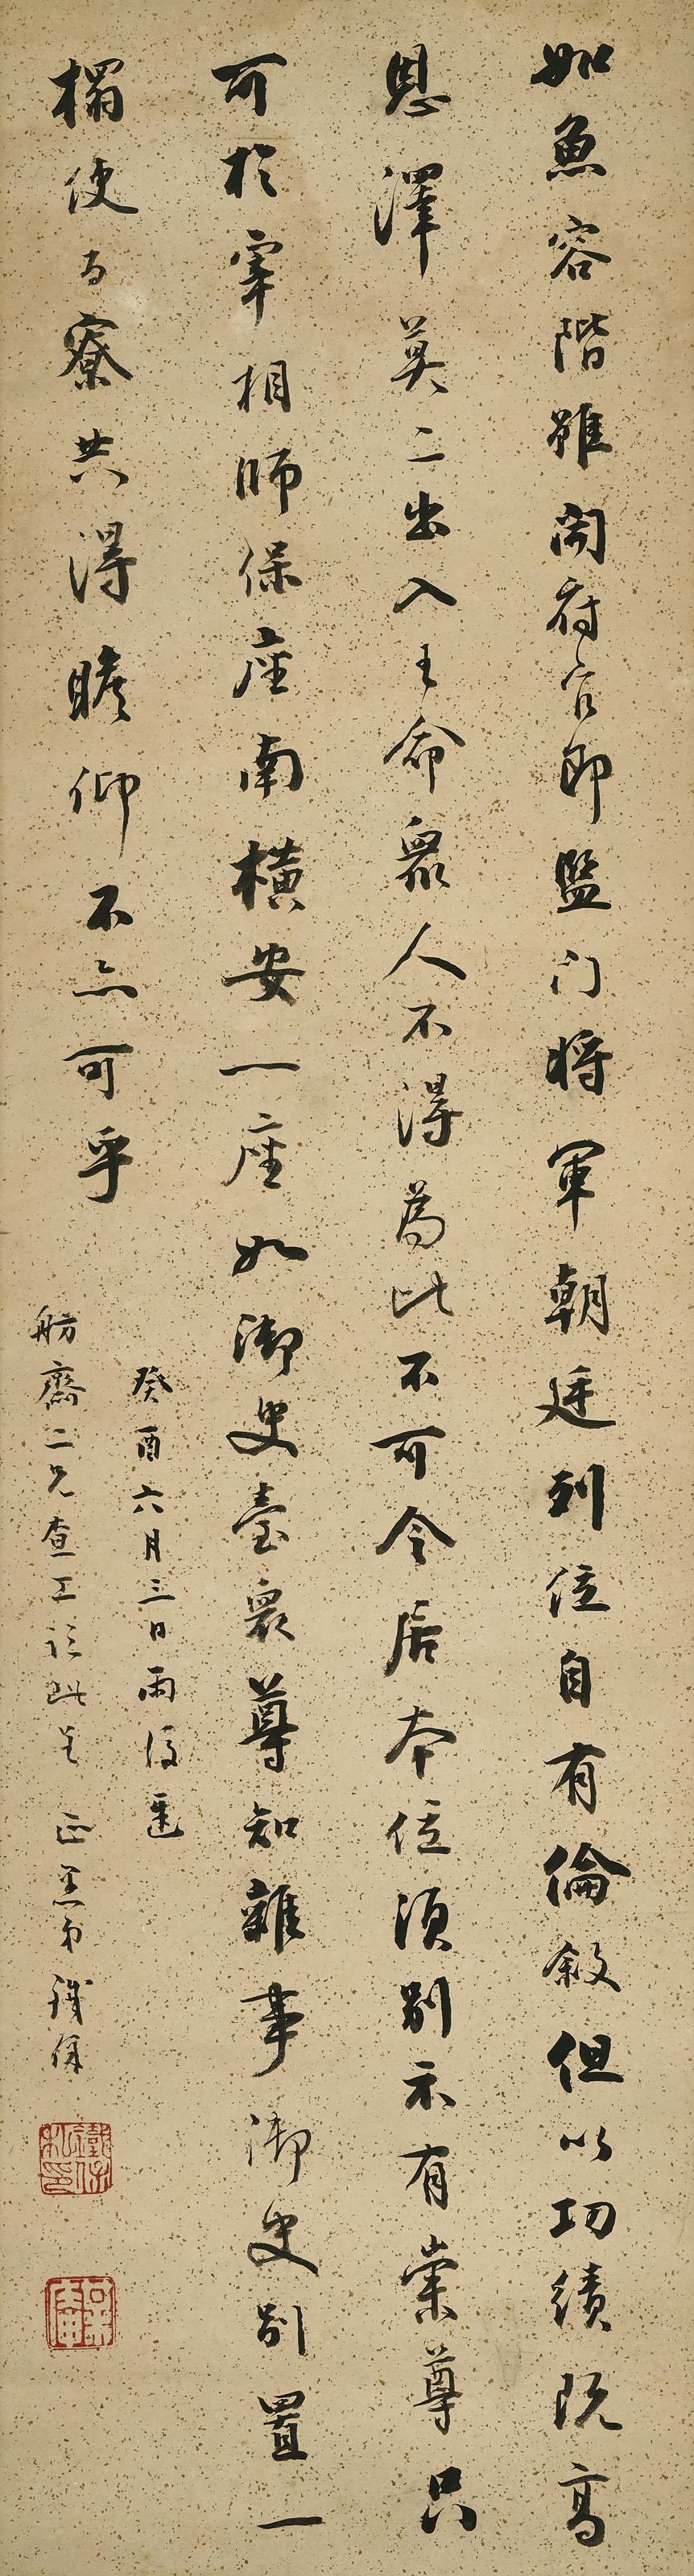 如魚容階雖開府官即監门將軍朝廷列位自有倫敘但以功績既高
恩澤莫二出入王命眾人不得為比不可令居本位須別示有崇尊只
可於宰相師保座南橫安一座如御史臺眾尊知雜事御史別置一
榻使百寮共得瞻仰不亦可乎
癸酉六月三日雨後運
舫齋二兄查工记此呈
正 愚弟鐵保
鐵保私印